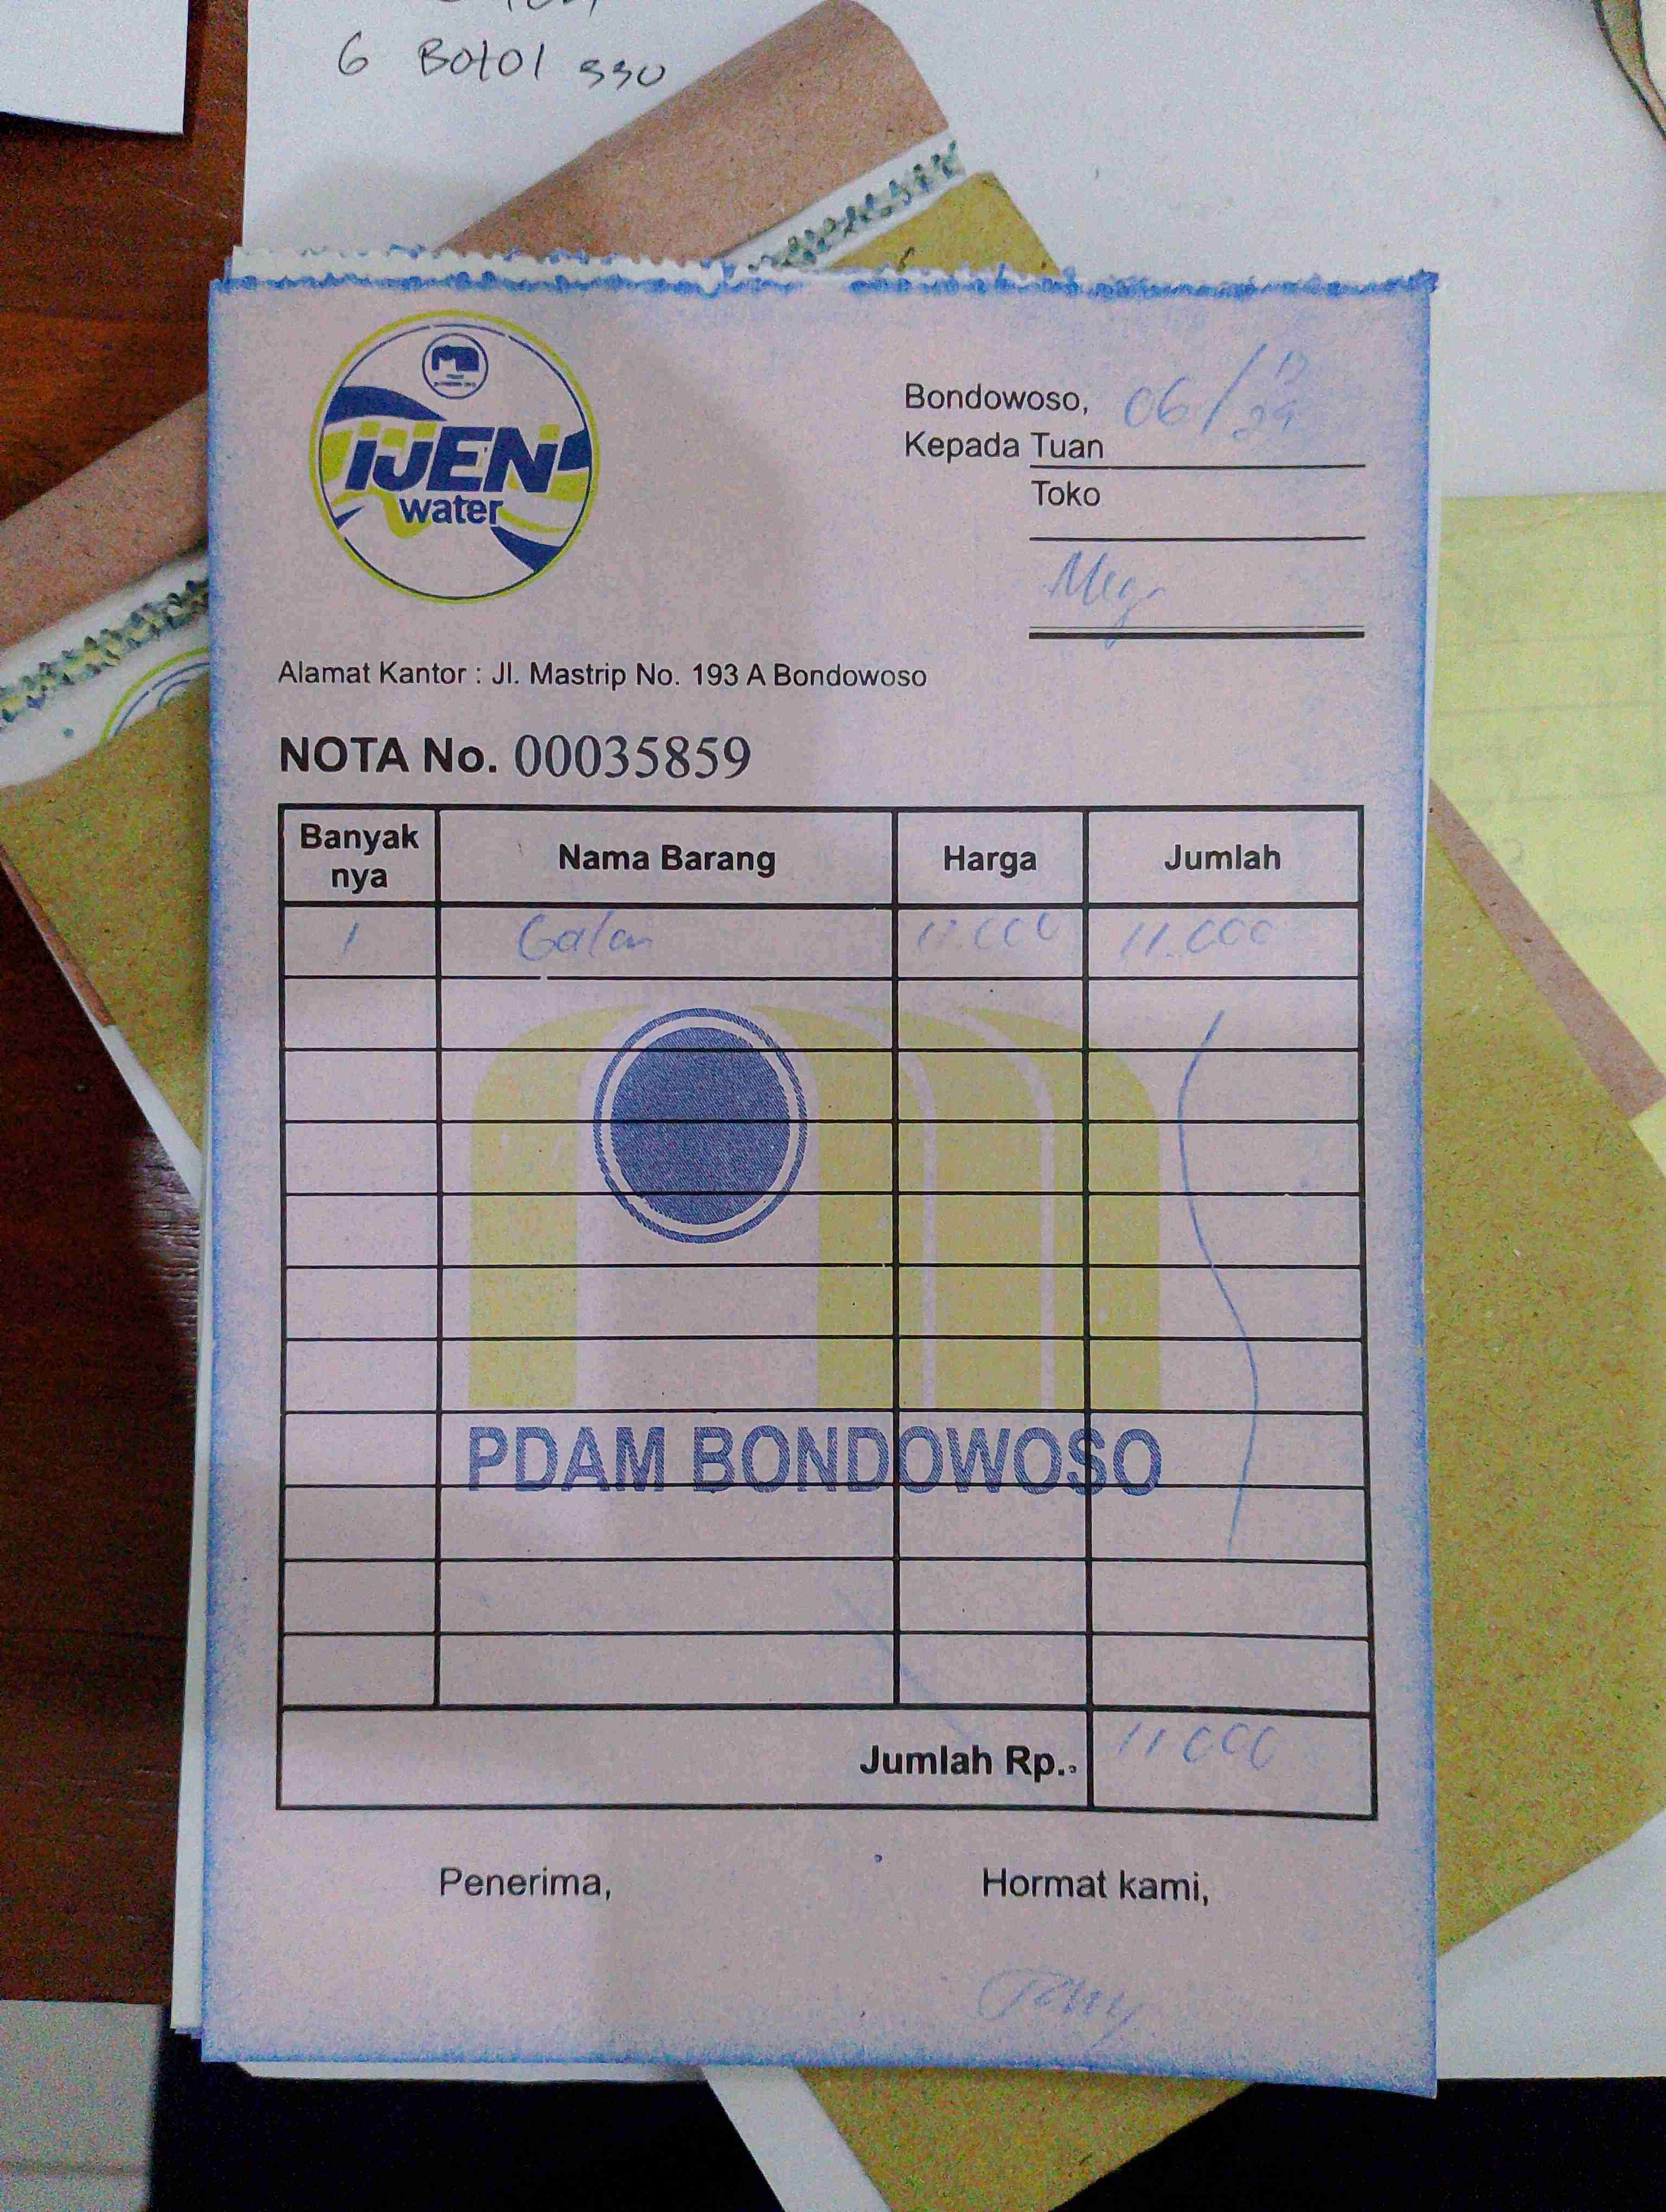 6 Botol 330
IJEN
water
Bondowoso, 06/
Kepada Tuan
Toko
Alamat Kantor : Jl. Mastrip No. 193 A Bondowoso
NOTA No. 00035859
Banyak nya Nama Barang Harga Jumlah
1 Galon 11.000 11.000
PDAM BONDOWOSO
Jumlah Rp.. 11000
Penerima, Hormat kami,